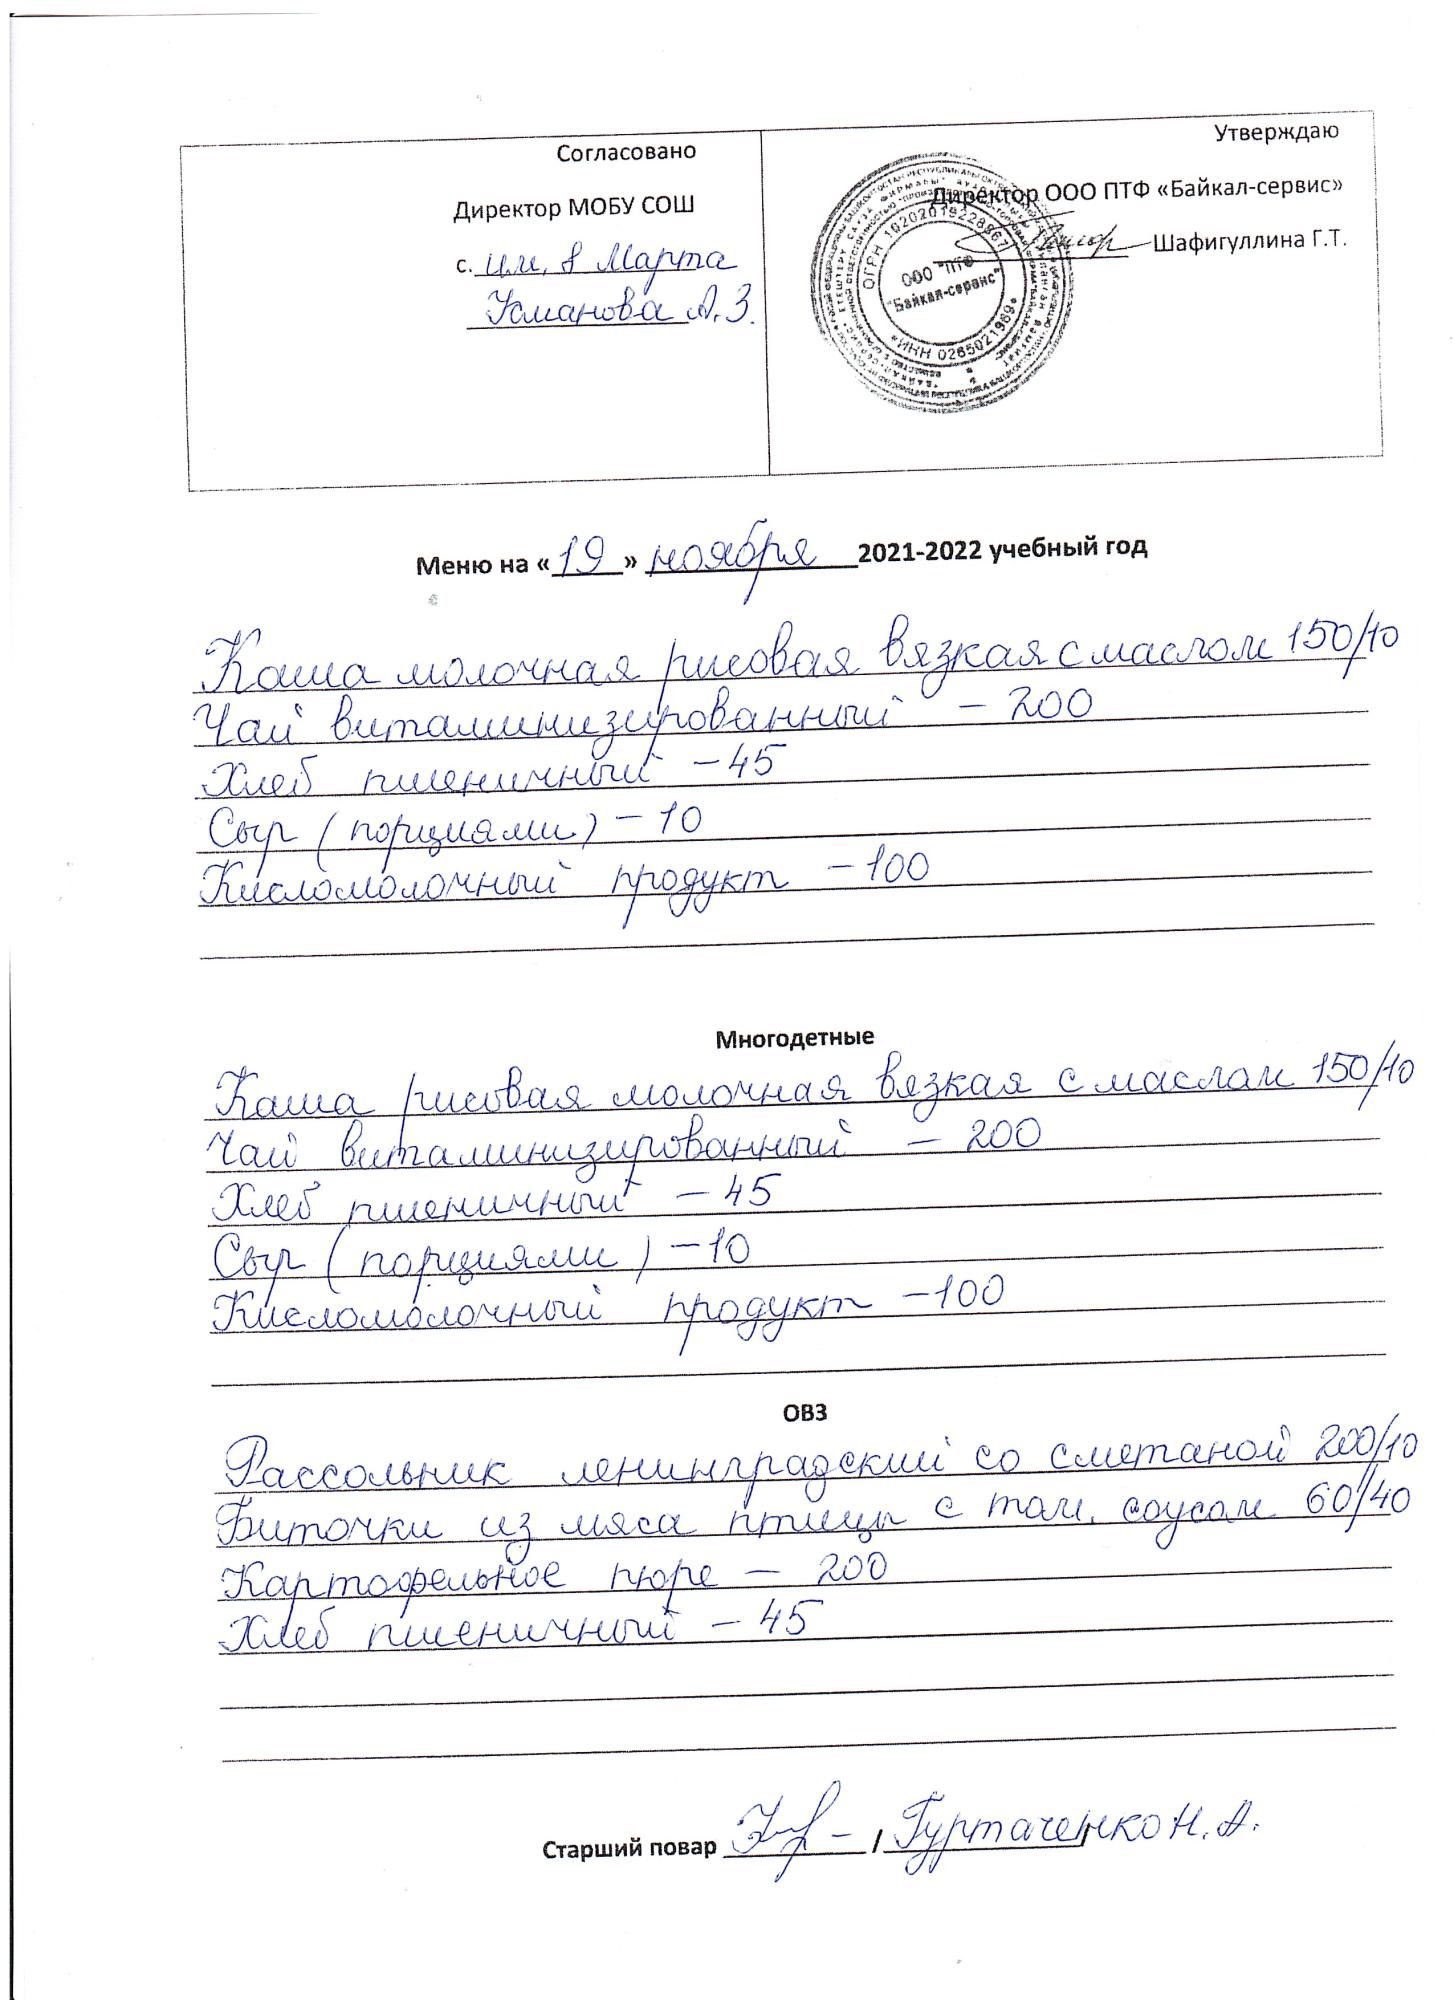 Согласовано
Директор МОБУ СОШ
с. им. 8 Марта
Усманова А.З.
Утверждаю
Директор ООО ПТФ «Байкал-сервис»
Шафигуллина Г.Т.
ОГРН 1020201922896
ООО "ПТФ
"Байкал-сервис"
ИНН 0265021969
Меню на «19» ноября 2021-2022 учебный год
Каша молочная рисовая вязкая с маслом 150/10
Чай витаминизированный - 200
Хлеб пшеничный - 45
Сыр (порциями) - 10
Кисломолочный продукт - 100
Многодетные
Каша рисовая молочная вязкая с маслом 150/10
Чай витаминизированный - 200
Хлеб пшеничный - 45
Сыр (порциями) - 10
Кисломолочный продукт - 100
ОВЗ
Рассольник ленинградский со сметаной 200/10
Биточки из мяса птицы с том. соусом 60/40
Картофельное пюре - 200
Хлеб пшеничный - 45
Старший повар / Гуртаченко Н.А.